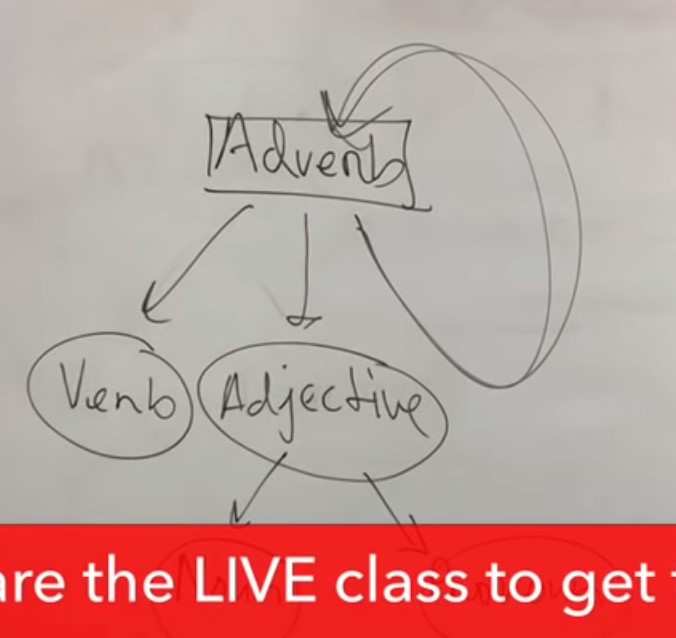 Adverb
Verb Adjective
are the LIVE class to get